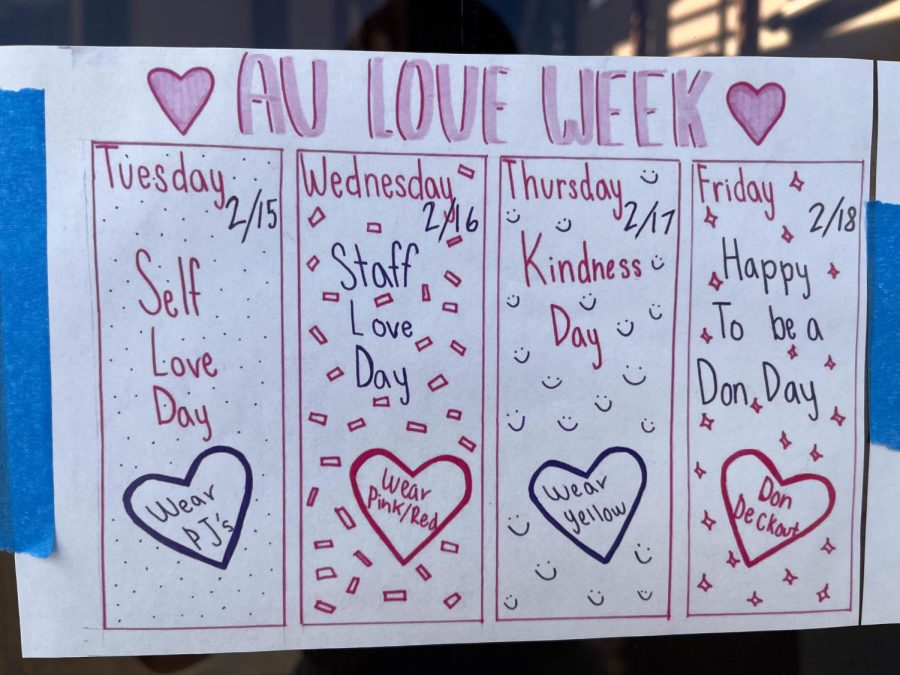 AV LOVE WEEK
Tuesday
2/15
Self
Love
Day
Wear
PJ's
Wednesday
2/16
Staff
Love
Day
Wear
Pink/Red
Thursday
2/17
Kindness
Day
Wear
yellow
Friday
2/18
Happy
To be a
Don Day
Don
Deckout